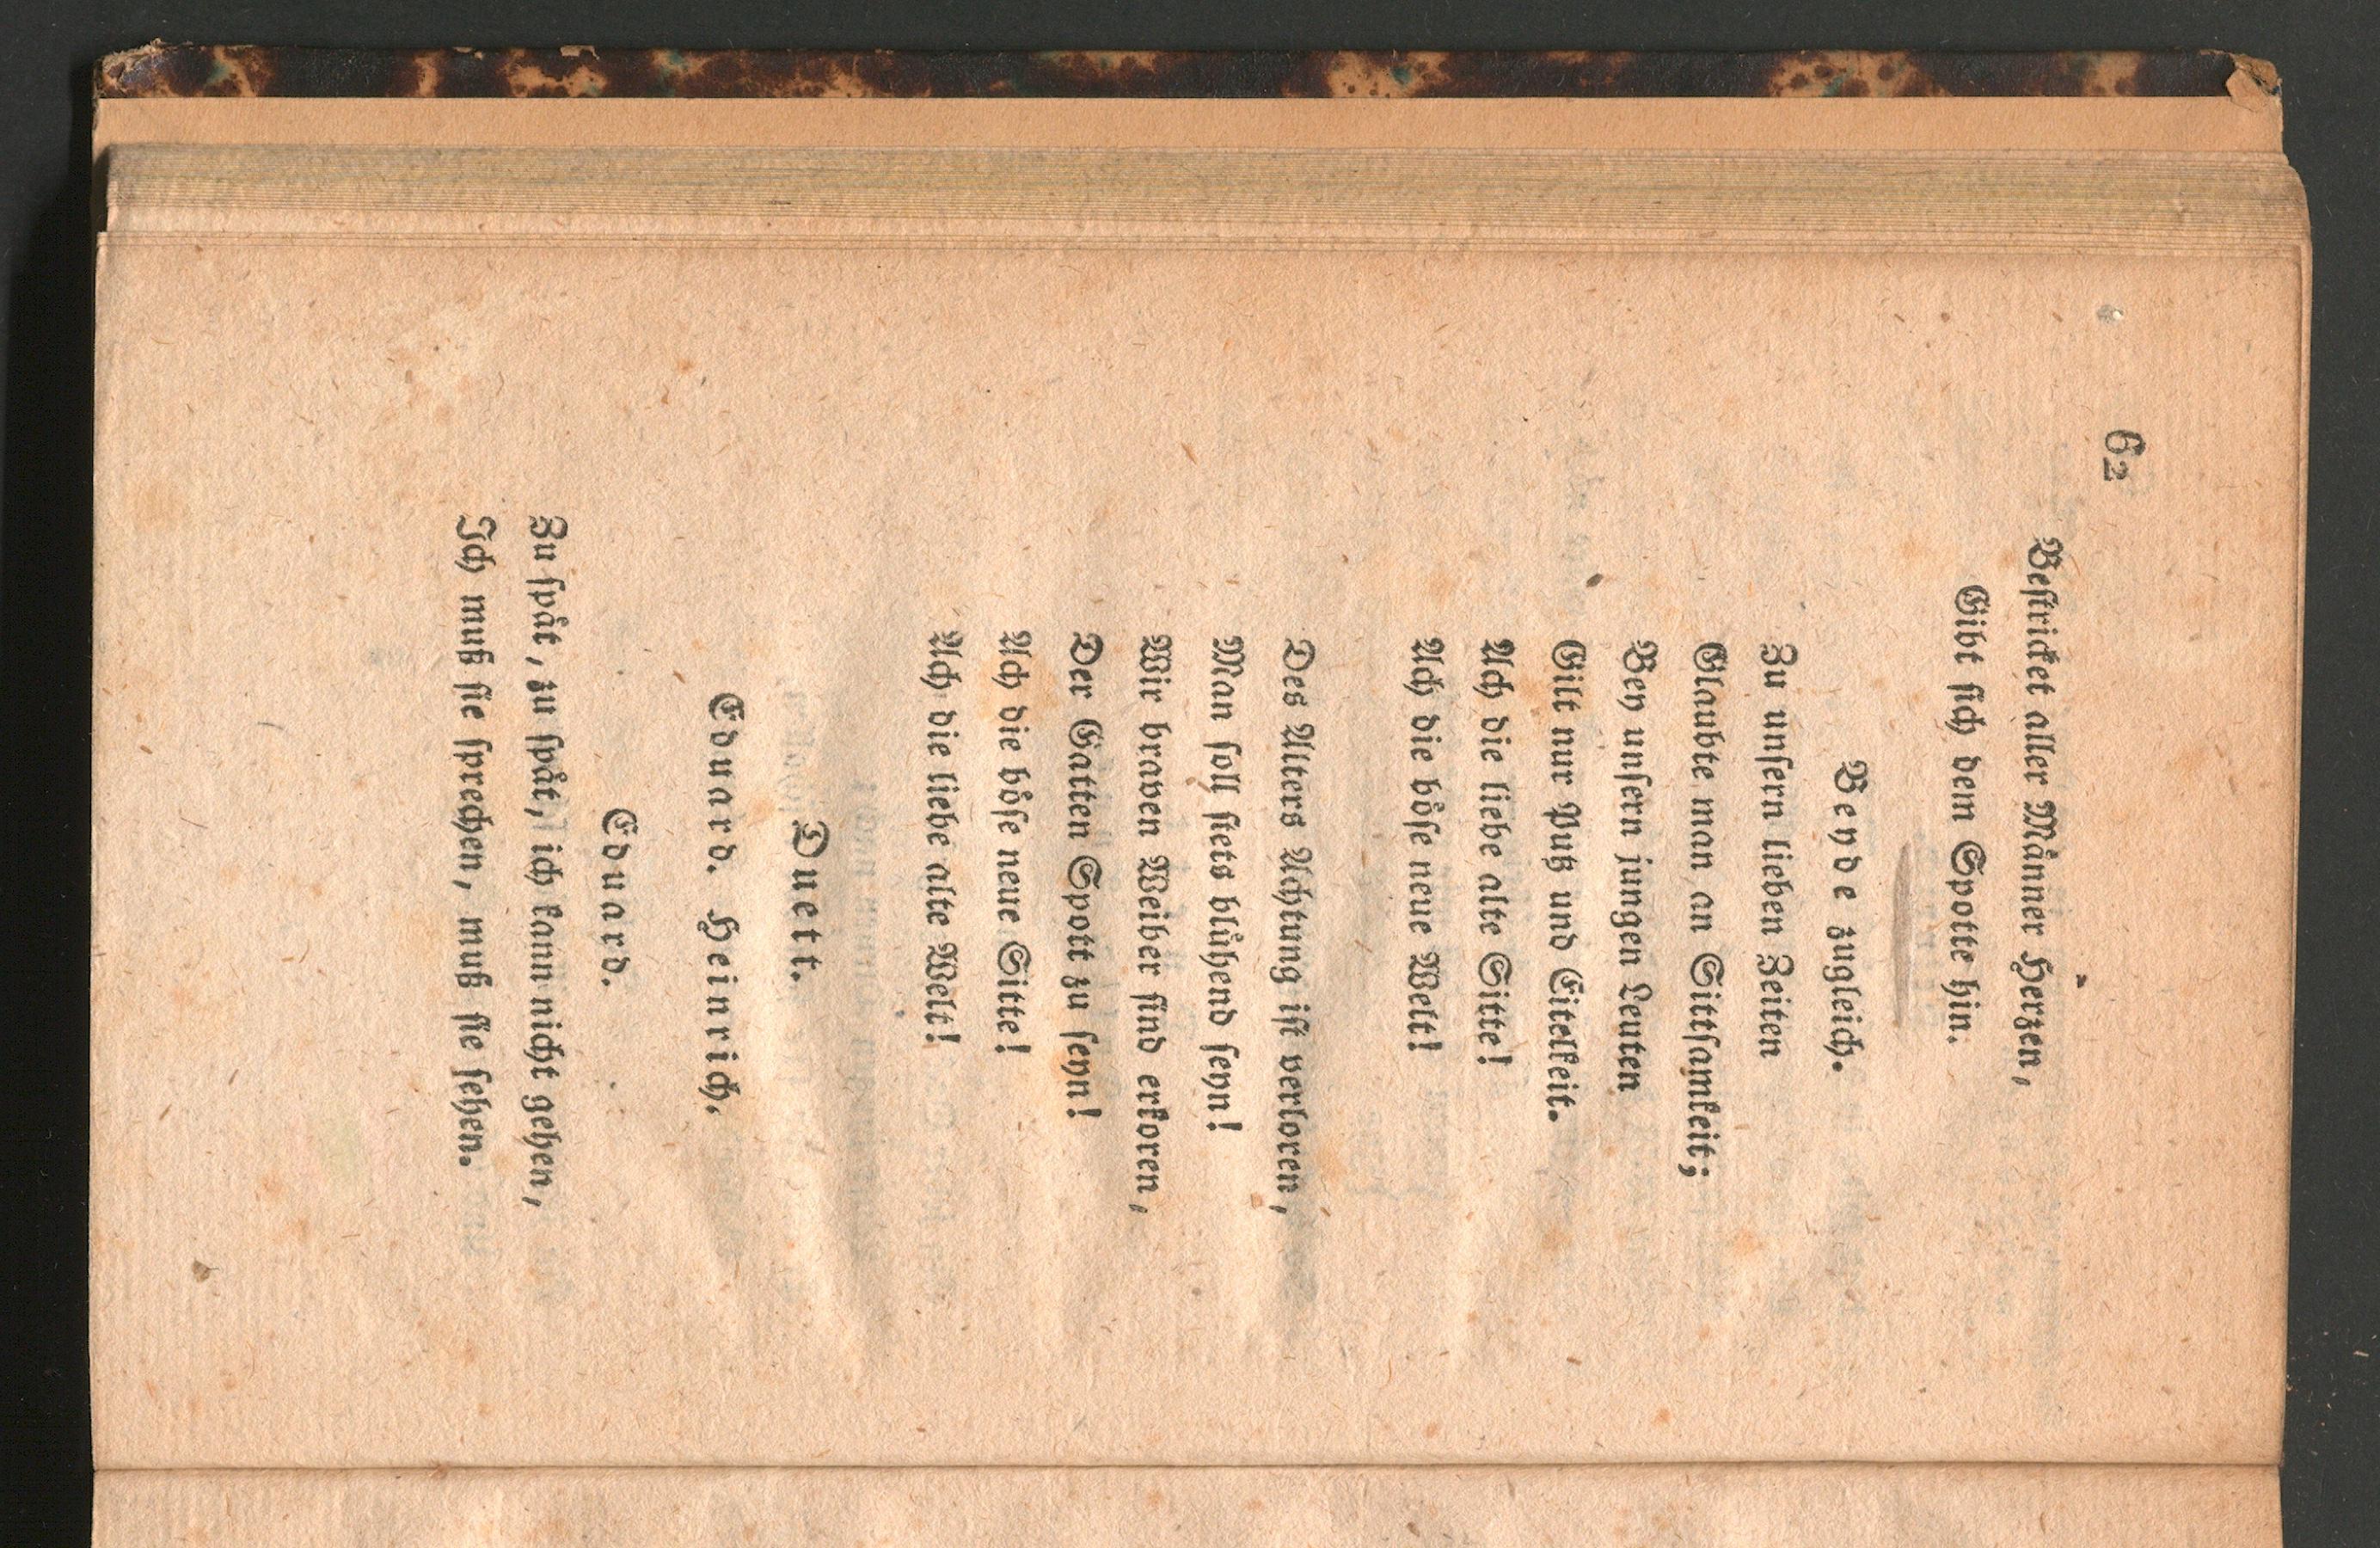 62
Beſtricket aller Männer Herzen,
Gibt ſich dem Spotte hin.
Beyde zugleich.
Zu unſern lieben Zeiten
Glaubte man an Sittſamkeit;
Bey unſern jungen Leuten
Gilt nur Putz und Eitelkeit.
Ach die liebe alte Sitte!
Ach die böſe neue Welt!
Des Alters Achtung iſt verloren,
Man ſoll ſtets blühend ſeyn!
Wir braven Weiber ſind erkoren,
Der Gatten Spott zu ſeyn!
Ach die böſe neue Sitte!
Ach die liebe alte Welt!
Duett.
Eduard. Heinrich.
Eduard.
Zu ſpät, zu ſpät, ich kann nicht gehen,
Ich muß ſie ſprechen, muß ſie ſehen.